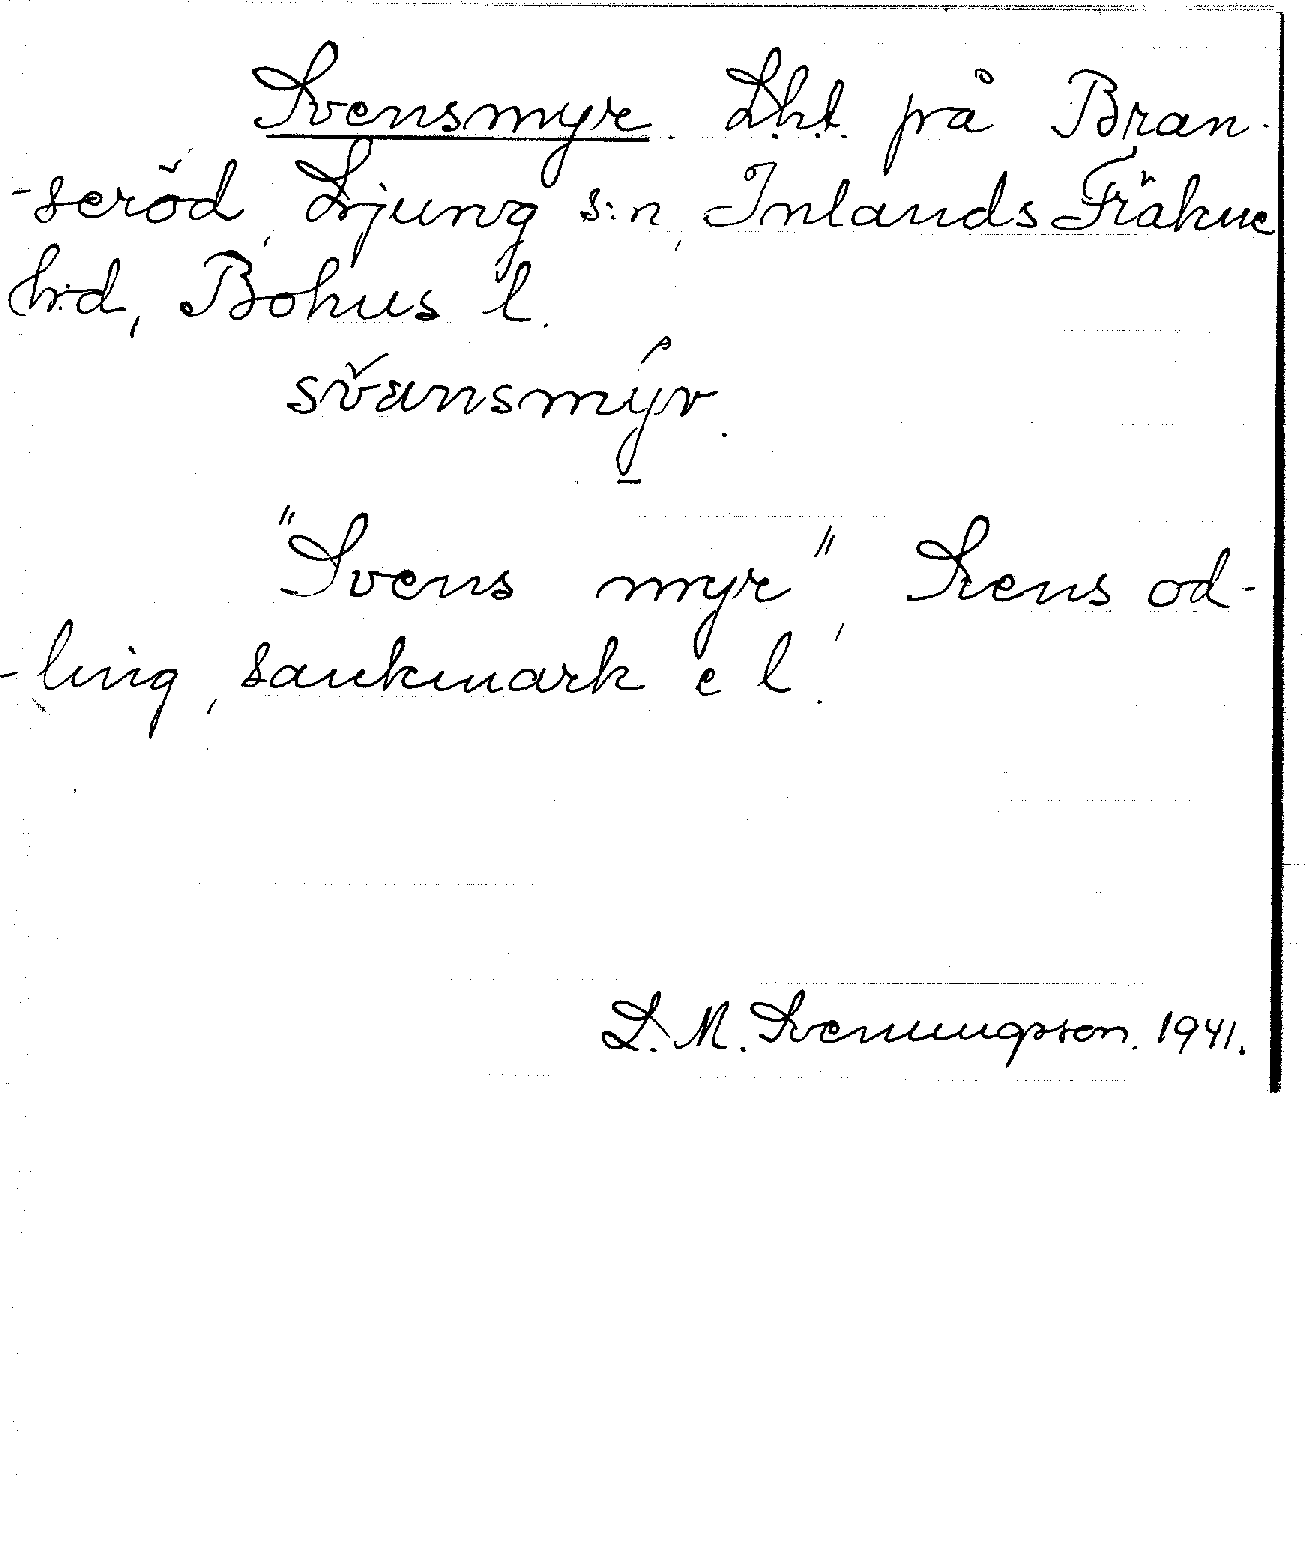 Svensmyr. Lht. på Bran-
-seröd, Ljung s:n, Inlands Fräkne
hrd, Bohus l.
svænsmýr.
"Svens myr", Svens od-
-ling, sankmark e l.
S. M. Svenungsson. 1941.